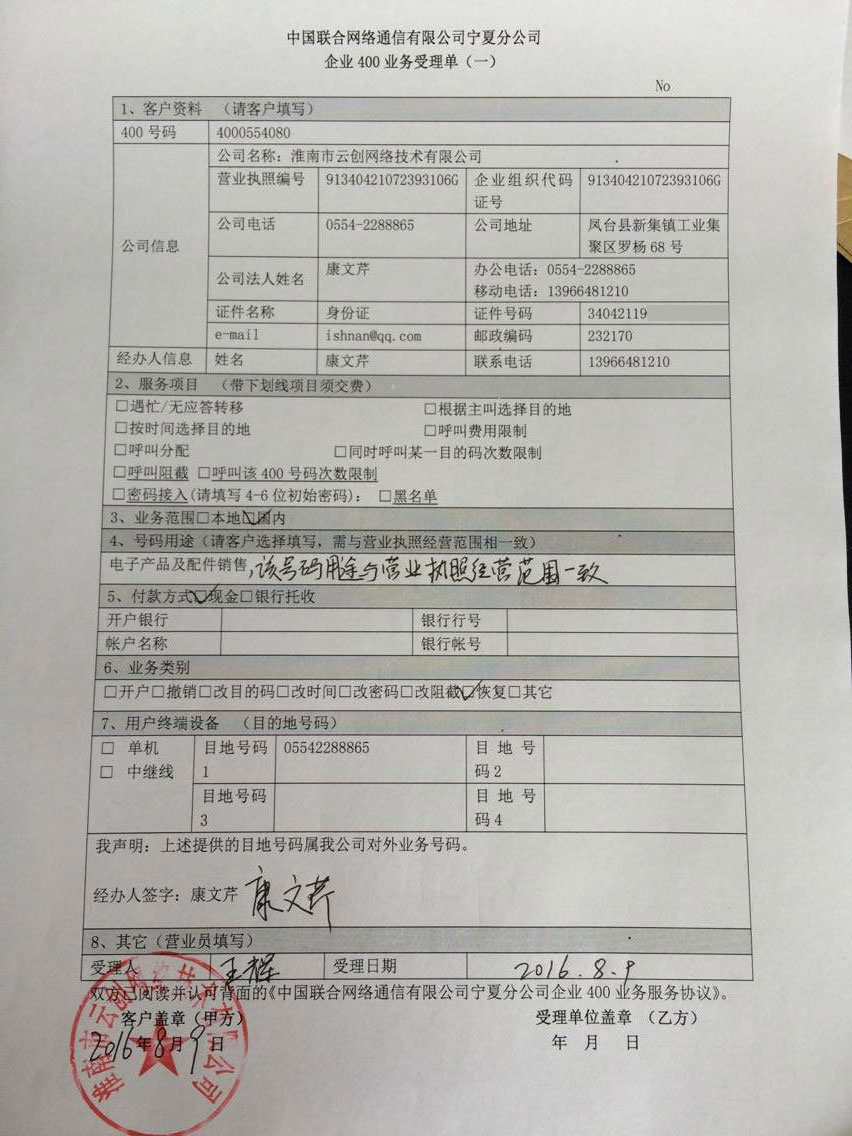 中国联合网络通信有限公司宁夏分公司
企业 400 业务受理单（一）
No
1、客户资料 （请客户填写）
400 号码 4000554080
公司信息
公司名称：淮南市云创网络技术有限公司
营业执照编号 91340421072393106G 企业组织代码证号 91340421072393106G
公司电话 0554-2288865 公司地址 凤台县新集镇工业集聚区罗杨 68 号
公司法人姓名 康文芹 办公电话：0554-2288865
移动电话：13966481210
证件名称 身份证 证件号码 34042119
e-mail ishnan@qq.com 邮政编码 232170
经办人信息 姓名 康文芹 联系电话 13966481210
2、服务项目 （带下划线项目须交费）
□遇忙/无应答转移 □根据主叫选择目的地
□按时间选择目的地 □呼叫费用限制
□呼叫分配 □同时呼叫某一目的码次数限制
□呼叫阻截 □呼叫该 400 号码次数限制
□密码接入(请填写 4-6 位初始密码)： □黑名单
3、业务范围□本地☑国内
4、号码用途（请客户选择填写，需与营业执照经营范围相一致）
电子产品及配件销售，该号码用途与营业执照经营范围一致
5、付款方式☑现金□银行托收
开户银行 银行行号
帐户名称 银行帐号
6、业务类别
□开户□撤销□改目的码□改时间□改密码□改阻截☑恢复□其它
7、用户终端设备 （目的地号码）
□ 单机
□ 中继线
目地号码1 05542288865 目地号码2
目地号码3 目地号码4
我声明：上述提供的目地号码属我公司对外业务号码。
经办人签字：康文芹 康文芹
8、其它（营业员填写）
受理人 王辉 受理日期 2016.8.9
双方已阅读并认可背面的《中国联合网络通信有限公司宁夏分公司企业 400 业务服务协议》。
客户盖章（甲方） 受理单位盖章 （乙方）
2016年8月9日 年 月 日
淮南市云创网络技术有限公司